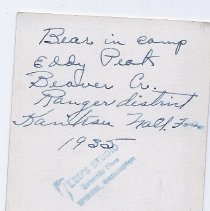 Bear in camp
Eddy Peak
Beaver Cr.
Ranger district
Kaniksu Natl. Forest
1935
LEO'S STUDIO
SPOKANE, WASHINGTON